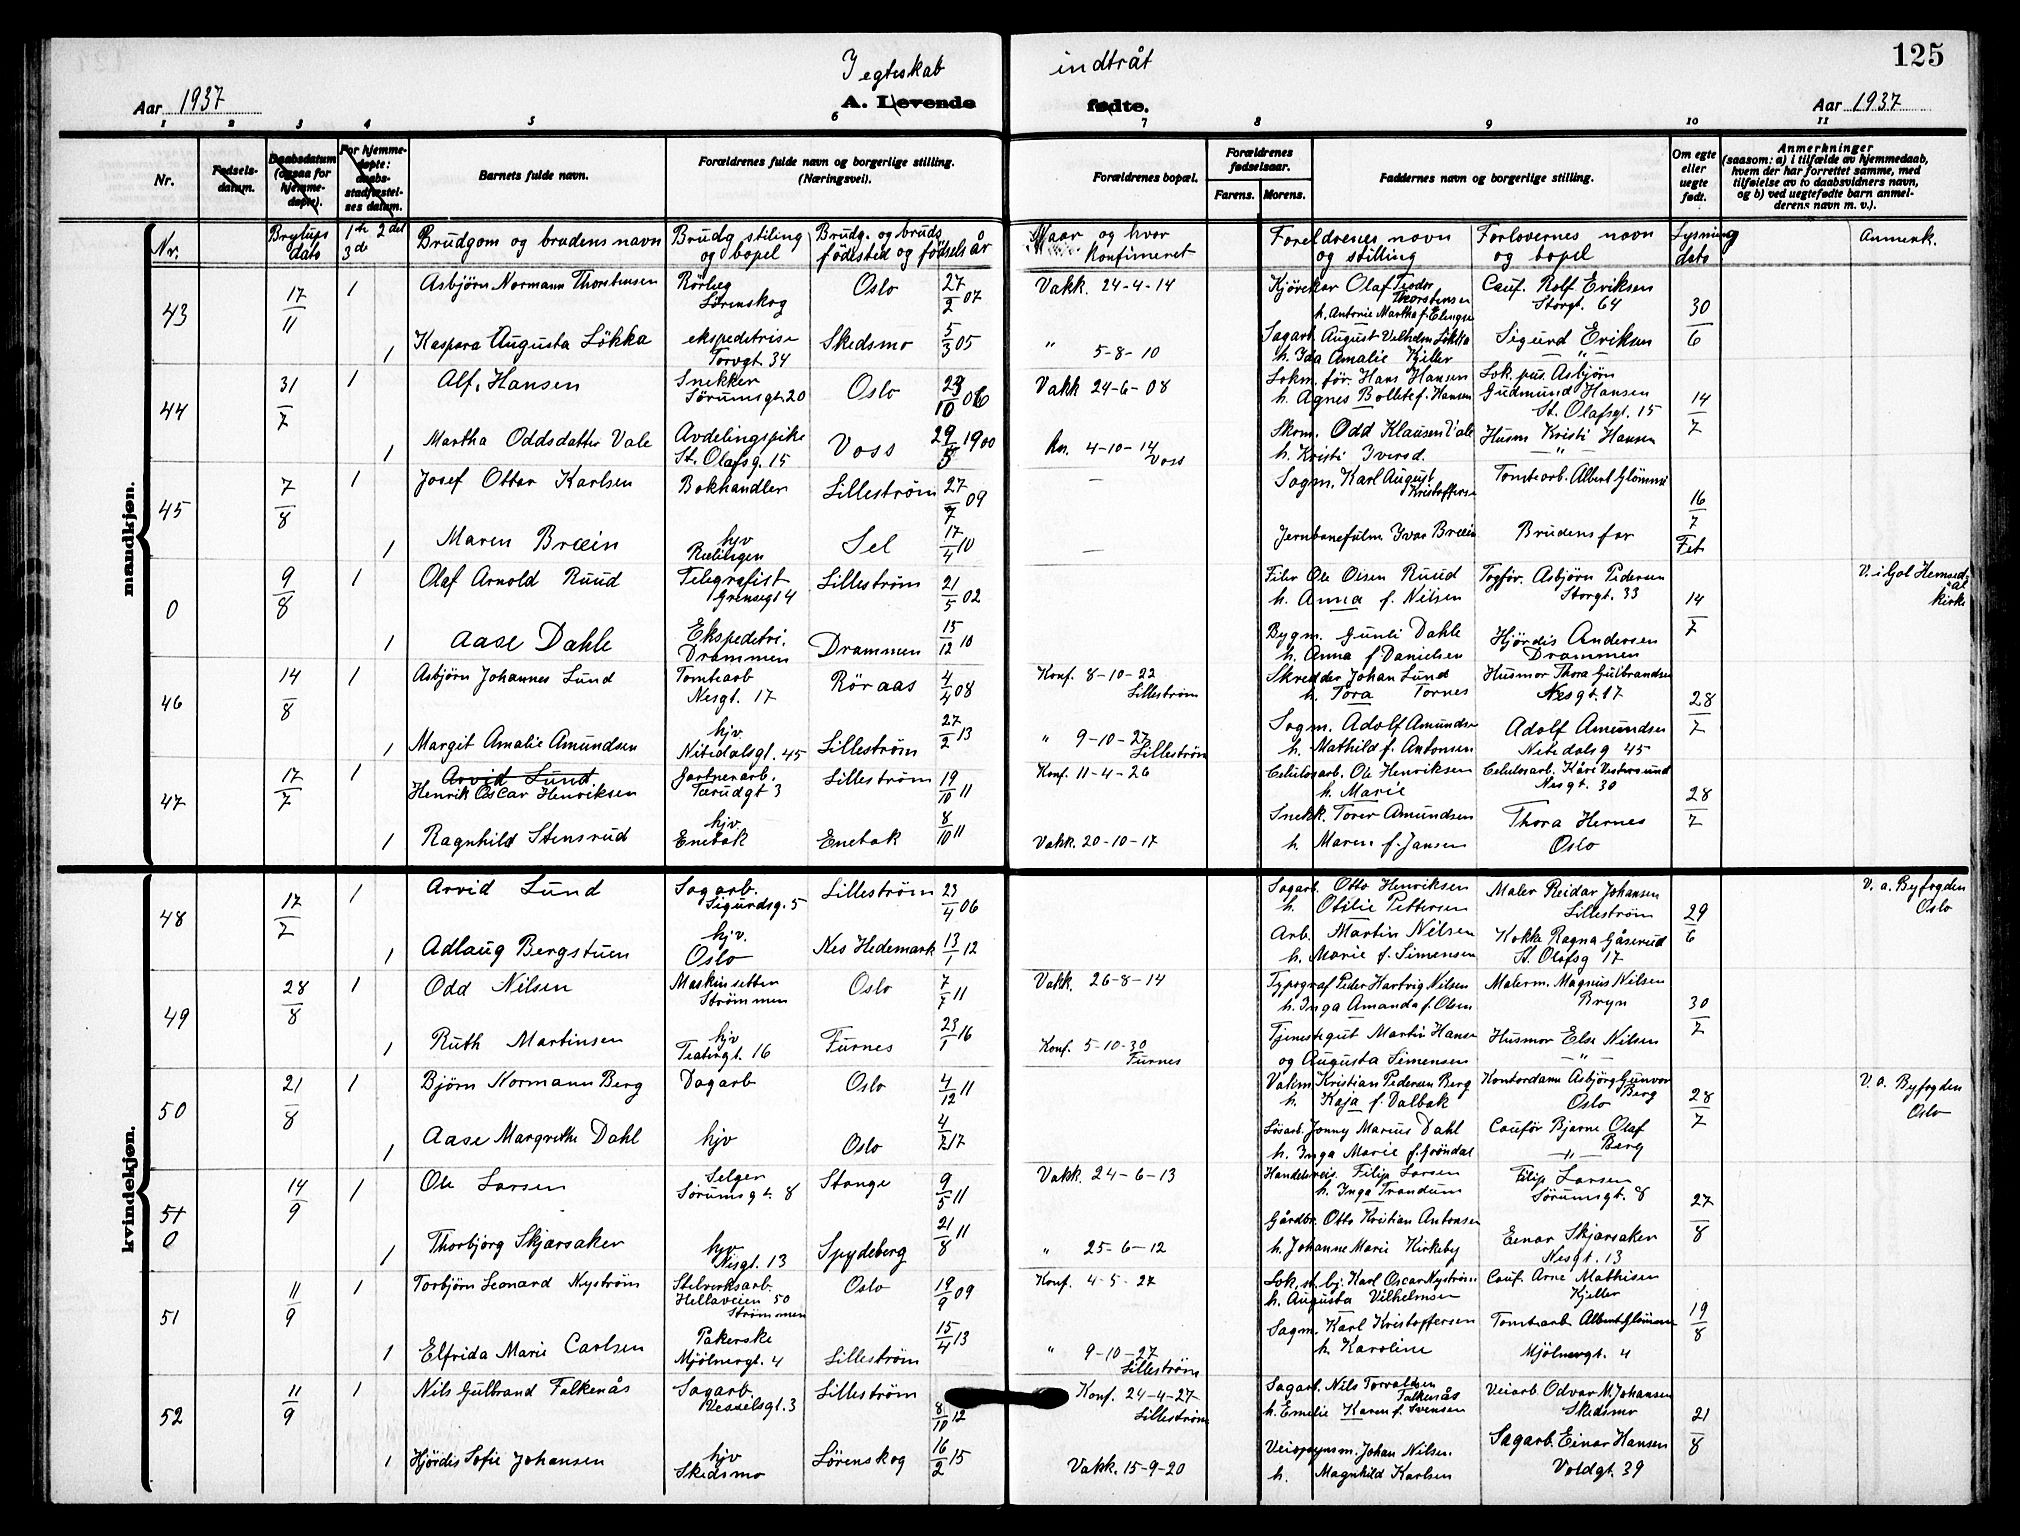 125
I egteskab indtråt
Aar 1937 A. Levende fødte. Aar 1937
1 2 3 4 5 6 7 8 9 10 11
Nr. Fødsels-datum. Daabsdatum (ogsaa for hjemme-døpte). For hjemme-døpte: daabs-stadfæstel-ses datum. Barnets fulde navn. Forældrenes fulde navn og borgerlige stilling. (Næringsvei). Forældrenes bopæl. Forældrenes fødselsaar. Farens. Morens. Faddernes navn og borgerlige stilling. Om egte eller uegte født. Anmerkninger (saasom: a) i tilfælde av hjemmedaab, hvem der har forrettet samme, med tilføielse av to daabsvidners navn, og b) ved uegtefødte barn anmel-derens navn m. v.).
Nr. Bryllups dato 1ste 2det 3de Brudgom og brudens navn Brudg stiling og bopel Brudg. og bruds fødested og fødselsår Naar og hvor Konfirmeret Foreldrenes navn og stilling Forlovernes navn og bopel Lysning dato Anmerk.
mandkjøn.
43 17/11 1 Asbjörn Normann Thorstensen Rörleg Lörenskog Oslo 27/2 07 Vakk. 24-4-14 Kjörekar Olaf Teodor Thorstensen h. Antonie Martha f. Elingse Cauf. Rolf Eriksen Storgt. 64 30/6
1 Kaspara Augusta Lökka ekspeditrise Torvgt. 34 Skedsmo 5/3 05 " 5-8-10 Sagarb. August Vilhelm Lökka h. Ida Amalie Kjeller Sigurd Eriksen — " —
44 31/7 1 Alf. Hansen Snekker Sörumsgt. 20 Oslo 23/10 06 Vakk 24-6-08 Lokm. för. Hans Hansen h. Agnes Bollete f. Hansen Lok. pus. Asbjörn Gudmund Hansen St. Olafsgt. 15 14/7
1 Martha Oddsdatter Vale Avdelingspike St. Olafsg. 15 Voss 29/5 1900 Kn. 4-10-14 Voss Skom. Odd Klausen Vale h. Kristi Iversd. Husm Kristi Hansen — " —
45 7/8 1 Josef Otter Karlsen Bokhandler Lilleström 27/7 09 — Sagm. Karl August Kristoffersen Tomtearb. Albert Glömmi 16/7 Fet
1 Maren Bræin hjv Rælingen Sel 17/4 10 — Jernbanefulm Ivar Bræin Brudens far
0 9/8 1 Olaf Arnold Ruud Telegrafist Grensegt 4 Lilleström 21/5 02 Filer Ole Olsen Ruud h. Anna f. Nilsen Togför. Asbjörn Pedersen Storgt. 33 14/7 V. i Gol Hemsedal kirke
1 Aase Dahle Ekspeditri. Drammen Drammen 15/12 10 Bygm. Gunli Dahle h. Anna f. Danielsen Hjördis Andersen Drammen
46 14/8 1 Asbjörn Johannes Lund Tomtearb Nesgt. 17 Röraas 4/4 08 Konf. 8-10-22 Lilleström Skredder Johan Lund h. Tora Tornes Husmor Thora Gulbrandsen Nesgt. 17 28/7
1 Margit Amalie Amundsen hjv. Nitidalsgt. 45 Lilleström 27/2 13 " 9-10-27 Lilleström Sagm. Adolf Amundsen h. Mathild f. Antonsen Adolf Amundsen Nitedalsg 45
47 17/7 1 Arvid Lund Henrik Oscar Henriksen Gartnerarb. Tærudgt 3 Lilleström 19/10 11 Konf. 11-4-26 Celulosarb. Ole Henriksen h. Marie Celulosarb. Kåre Vestersund Nesgt. 30 28/7
1 Ragnhild Stensrud hjv. Enebak Enebak 8/10 11 Vakk. 20-10-17 Snekk. Torer Amundsen h. Maren f. Jansen Thora Hernes Oslo
kvindekjøn.
48 17/7 1 Arvid Lund Sagarb. Sigurdsg. 5 Lilleström 23/4 06 Sagarb. Otto Henriksen h. Otilie Pettersen Maler Reidar Johansen Lilleström 29/6 V. a. Byfogden Oslo
1 Adlaug Bergstuen hjv. Oslo Nes Hedemark 13/1 12 Arb. Martin Nilsen h. Marie f. Simensen Kokke Ragna Gåserud St. Olafsg 17
49 28/8 1 Odd Nilsen Maskinsetter Strömmen Oslo 7/7 11 Vakk. 26-8-14 Typograf Peder Hartvig Nilsen h. Inga Amanda f. Olsen Malerm. Magnus Nilsen Bryn 30/7
1 Ruth Martinsen hjv Teatergt. 16 Furnes 23/1 16 Konf. 5-10-30 Furnes Tjenestegut Martin Hansen og Augusta Simensen Husmor Else Nilsen — " —
50 21/8 1 Björn Normann Berg Dagarb Oslo 4/12 11 Vakm Kristian Pedersen Berg h. Kaja f. Dalbak Kontordame Asbjörg Gunvor Berg Oslo 28/7 V. a. Byfogden Oslo
1 Aase Margrethe Dahl hjv Oslo 4/7 17 Lösarb. Jonny Marius Dahl h. Inga Marie f. Gröndal Caufør Bjarne Olaf Berg — " —
51 0 14/9 1 Ole Larsen Selger Sörumsgt. 8 Stange 9/5 11 Vakk. 24-6-13 Handelsreis. Filip Larsen h. Inga Trandum Filip Larsen Sörumsgt. 8 27/8
1 Thorbjörg Skjærsaker hjv Nesgt. 13 Spydeberg 21/8 11 " 25-6-12 Gårdbr. Otto Kristian Antonsen h. Johanne Marie Kirkeby Einar Skjærsaker Nesgt. 13
51 11/9 1 Torbjörn Leonard Nyström Stelverksarb. Hellaveien 50 Strömmen Oslo 19/9 09 Konf. 4-5-27 Lok. st. bj. Karl Oscar Nyström h. Augusta Vilhelmsen Cauf. Arne Mathisen Kjeller 19/8
1 Elfrida Marie Carlsen Pakerske Mjölnergt. 4 Lilleström 15/4 13 " 9-10-27 Lilleström Sagm. Karl Kristoffersen h. Karoline Tomtearb Albert Glömmen Mjölnergt. 4
52 11/9 1 Nils Gulbrand Falkenås Sagarb. Vesselsgt. 3 Lilleström 8/10 12 Konf. 24-4-27 Lilleström Sagarb. Nils Torvaldsen Falkenås h. Emelie Karen f. Svensen Veiarb. Odvar M. Johansen Skedsmo 21/8
1 Hjördis Sofie Johansen hjv Skedsmo Lörenskog 16/2 15 Vakk. 15-9-20 Veiopsynsm. Johan Nilsen. h. Magnhild Karlsen Sagarb. Einar Hansen Voldgt. 39